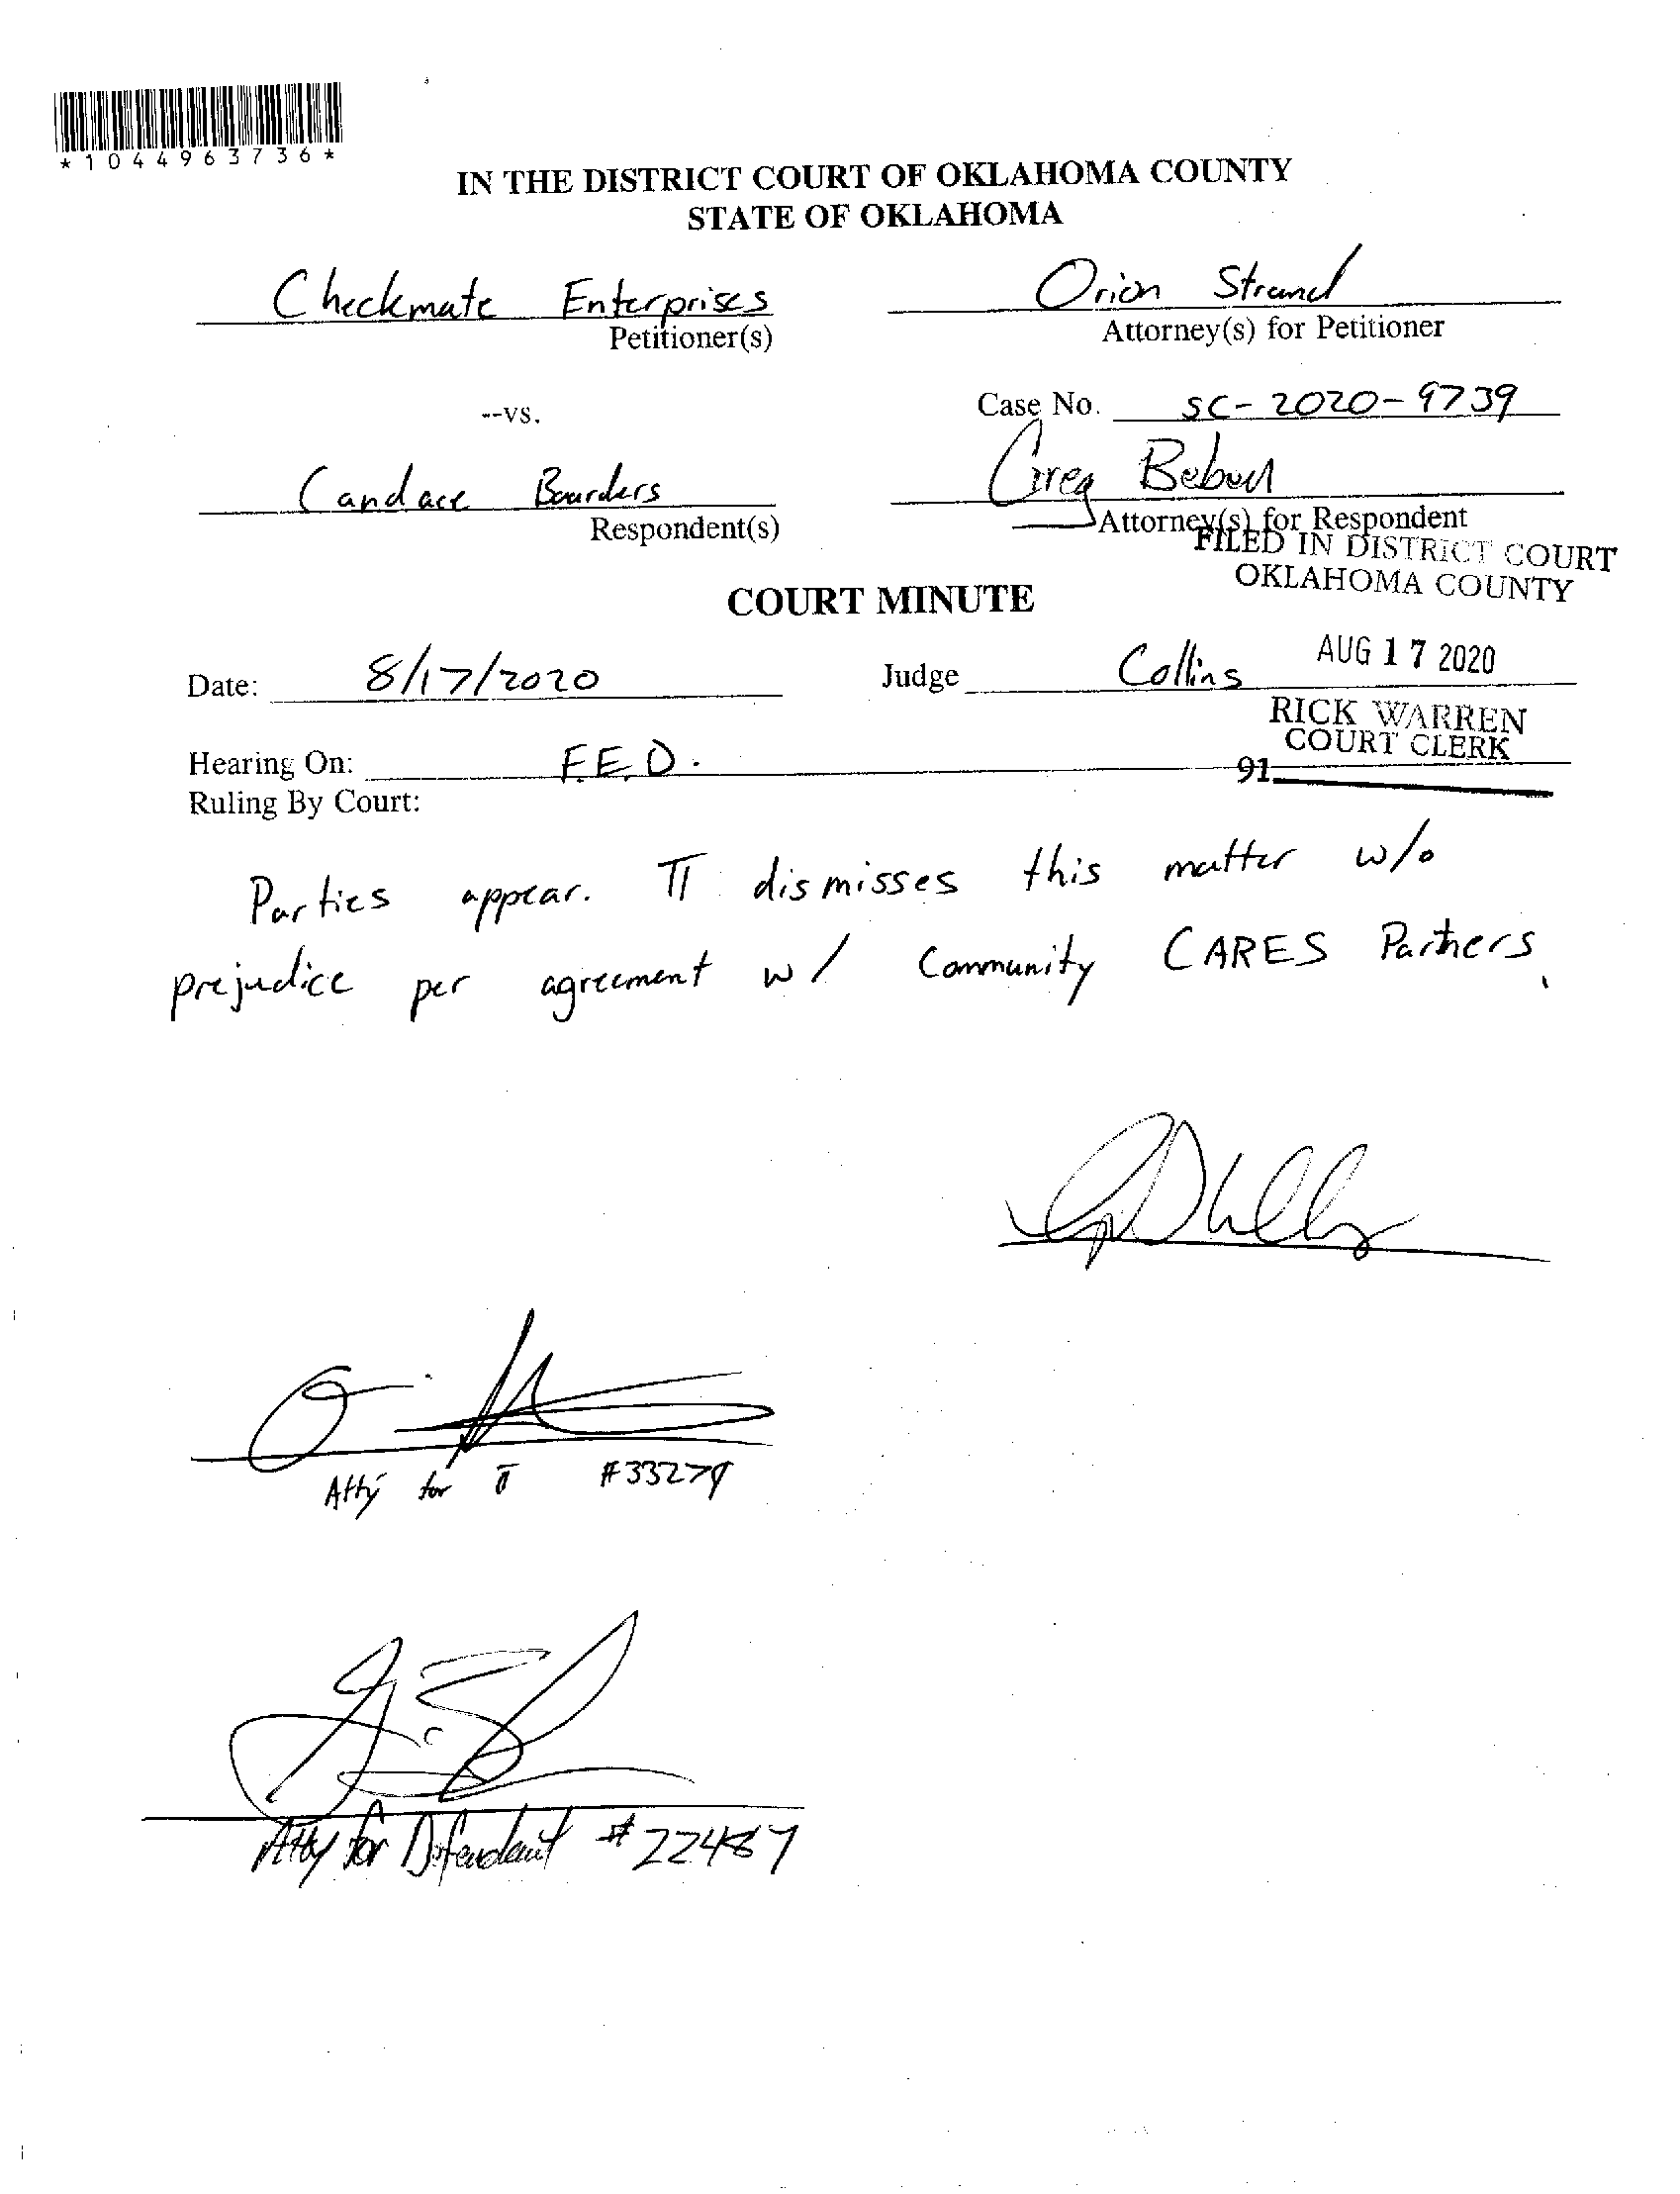 *1044963736*
IN THE DISTRICT COURT OF OKLAHOMA COUNTY
STATE OF OKLAHOMA
Checkmate Enterprises
Petitioner(s)
Orion Strand
Attorney(s) for Petitioner
--vs.
Case No. SC-2020-9739
Candace Bourders
Respondent(s)
Greg
Attorney(s) for Respondent
FILED IN DISTRICT COURT
OKLAHOMA COUNTY
COURT MINUTE
AUG 17 2020
Date: 8/17/2020
Judge Collins
RICK WARREN
COURT CLERK
Hearing On: F.E.D.
91
Ruling By Court:
Parties appear. π dismisses this matter w/o
prejudice per agreement w/ Community CARES Partners.
Atty for π #33279
Atty for Defendant #22487